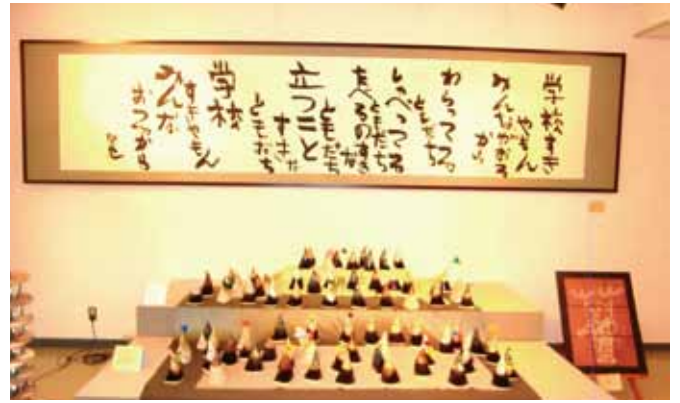 学校すき
やもん
みんながおる
から
わらってる
ともだち
しゃべってる
ともだち
たべるのすきな
ともだち
立つこと
すきな
ともだち
学校
すきやもん
みんな
おってから